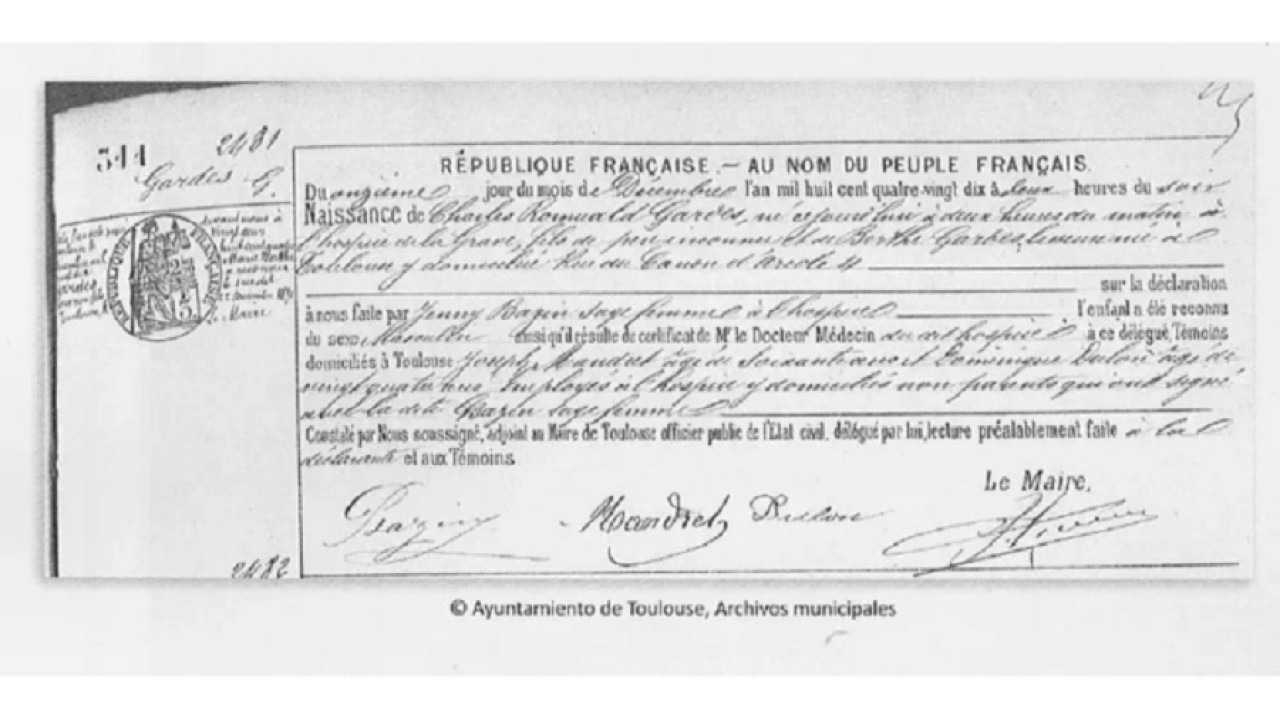 2481
544
Gardès G.
RÉPUBLIQUE FRANÇAISE.— AU NOM DU PEUPLE FRANÇAIS.
Du onzième jour du mois de Décembre l'an mil huit cent quatre-vingt dix à deux heures du soir
Naissance de Charles Romuald Gardes, né ce jourd'hui à deux heures du matin à
l'hospice de la Grave, fils de père inconnu et de Berthe Gardes née à
Toulouse y domiciliée Rue du Canon d'Arcole 4
sur la déclaration
à nous faite par Jenny Bazin sage femme à l'hospice l'enfant a été reconnu
du sexe Masculin ainsi qu'il résulte du certificat de Mr le Docteur Médecin du dit hospice à ce délégué, Témoins
domiciliés à Toulouse Joseph Mandret âgé de Soixante ans et Dominique Dulon âgé de
vingt quatre ans Employés à l'hospice y domiciliés non parents qui ont signé
avec la dite Bazin sage femme
Constaté par Nous soussigné, adjoint au Maire de Toulouse officier public de l'Etat civil, délégué par lui, lecture préalablement faite à la
déclarante et aux Témoins.
Le Maire,
Bazin Mandret Dulon
2482
© Ayuntamiento de Toulouse, Archivos municipales